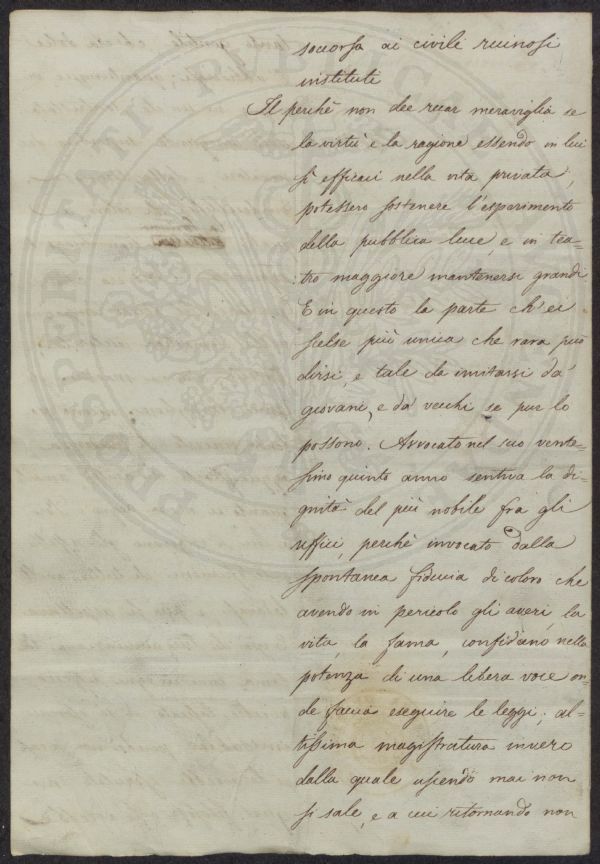 soccorsa ai civili ruinosi
instituti
Il perchè non dee recar meraviglia se
la virtù e la ragione essendo in lui
sì efficaci nella vita privata,
potessero sostenere l'esperimento
della pubblica luce, e in tea=
tro maggiore mantenersi grandi
E in questo la parte ch'ei
scelse più unica che rara può
dirsi, e tale da imitarsi da'
giovani, e da' vecchi se pur lo
possono. Avvocato nel suo vente=
simo quinto anno sentiva la di=
gnità del più nobile fra gli
uffici, perchè invocato dalla
spontanea fiducia di coloro che
avendo in pericolo gli averi, la
vita, la fama, confidano nella
potenza di una libera voce on=
de faccia eseguire le leggi; al=
tissima magistratura invero
dalla quale uscendo mai non
si sale, e a cui ritornando non